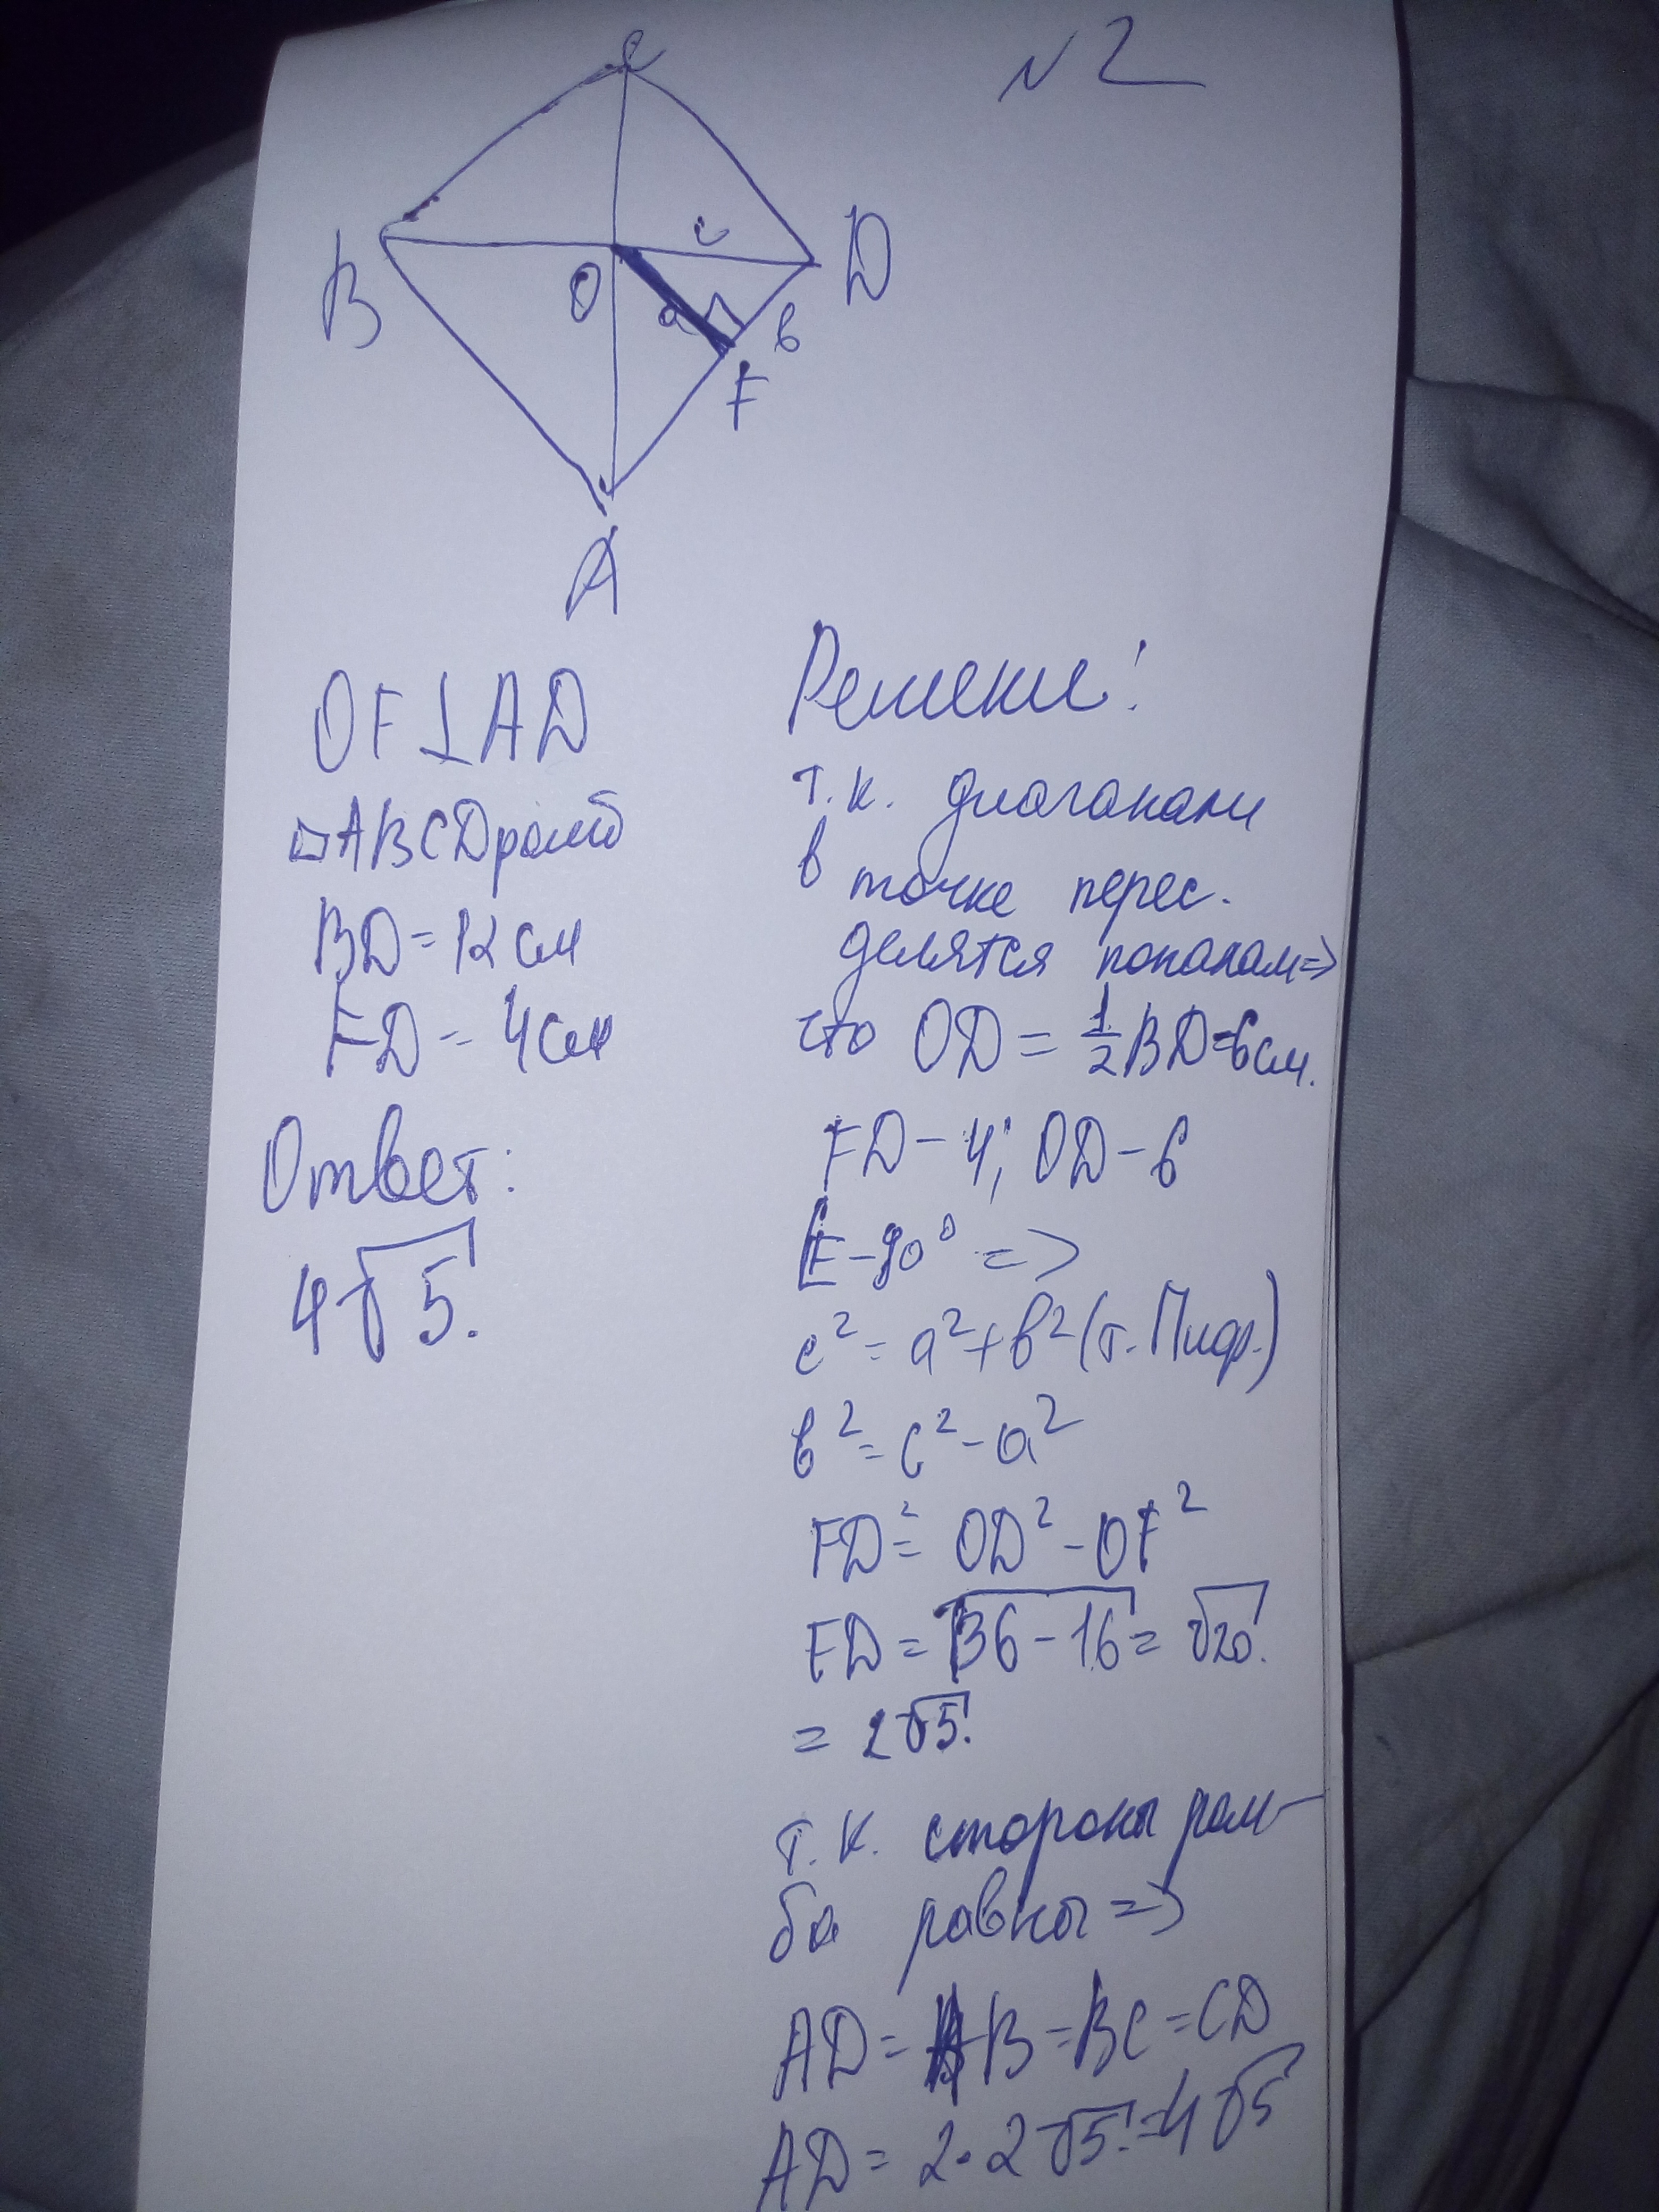 №2
C
B
D
O
c
a
в
F
A
OF⊥AD
▱ABCD ромб
BD=12 см
FD - 4 см
Ответ:
4√5.
Решение:
т.к. диагонали
в точке перес.
делятся попалам=>
что OD = 1/2 BD=6 см.
FD - 4; OD - 6
F - 90° =>
c² = a² + в² (т. Пиф.)
в² = c² - a²
FD² = OD² - OF²
FD = √36 - 16 = √20.
= 2√5.
т.к. стороны ром-
ба равны =>
AD = AB = BC = CD
AD = 2 · 2√5 = 4√5